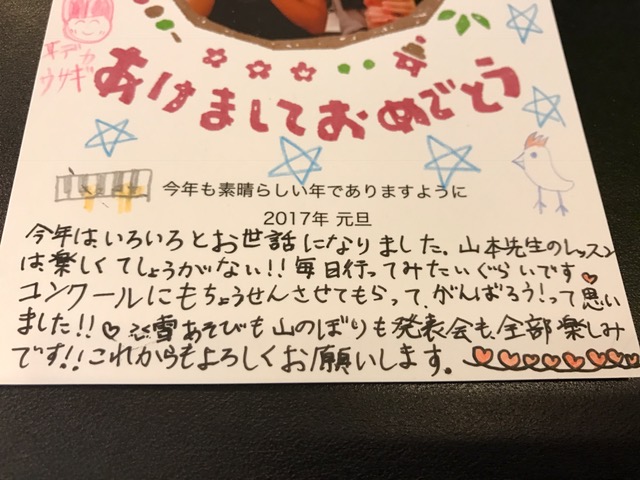 耳デカ
ウサギ
あけましておめでとう
今年も素晴らしい年でありますように
2017年 元旦
今年はいろいろとお世話になりました。山本先生のレッスン
は楽しくてしょうがない!!毎日行ってみたいぐらいです
コンクールにもちょうせんさせてもらって、がんばろう!って思い
ました!! 雪あそびも山のぼりも発表会も、全部楽しみ
です!!これからもよろしくお願いします。